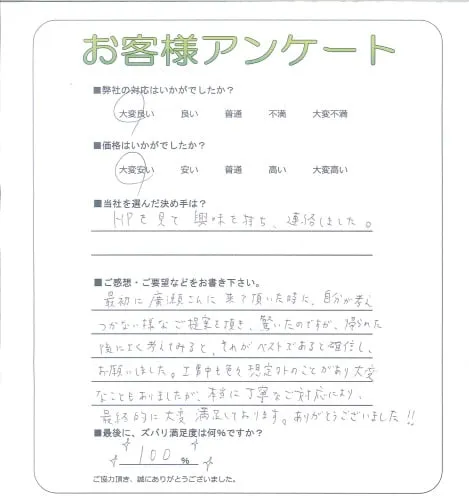 お客様アンケート
■弊社の対応はいかがでしたか？
大変良い 良い 普通 不満 大変不満
■価格はいかがでしたか？
大変安い 安い 普通 高い 大変高い
■当社を選んだ決め手は？
HPを見て興味を持ち、連絡しました。
■ご感想・ご要望などをお書き下さい。
最初に廣瀬さんに来て頂いた時に、自分が考え
つかない様なご提案を頂き、驚いたのですが、帰られた
後によく考えてみると、それがベストであると確信し、
お願いしました。工事中も色々想定外のことがあり大変
なこともありましたが、本当に丁寧なご対応により、
最終的に大変満足しております。ありがとうございました!!
■最後に、ズバリ満足度は何%ですか？
100 %
ご協力頂き、誠にありがとうございました。